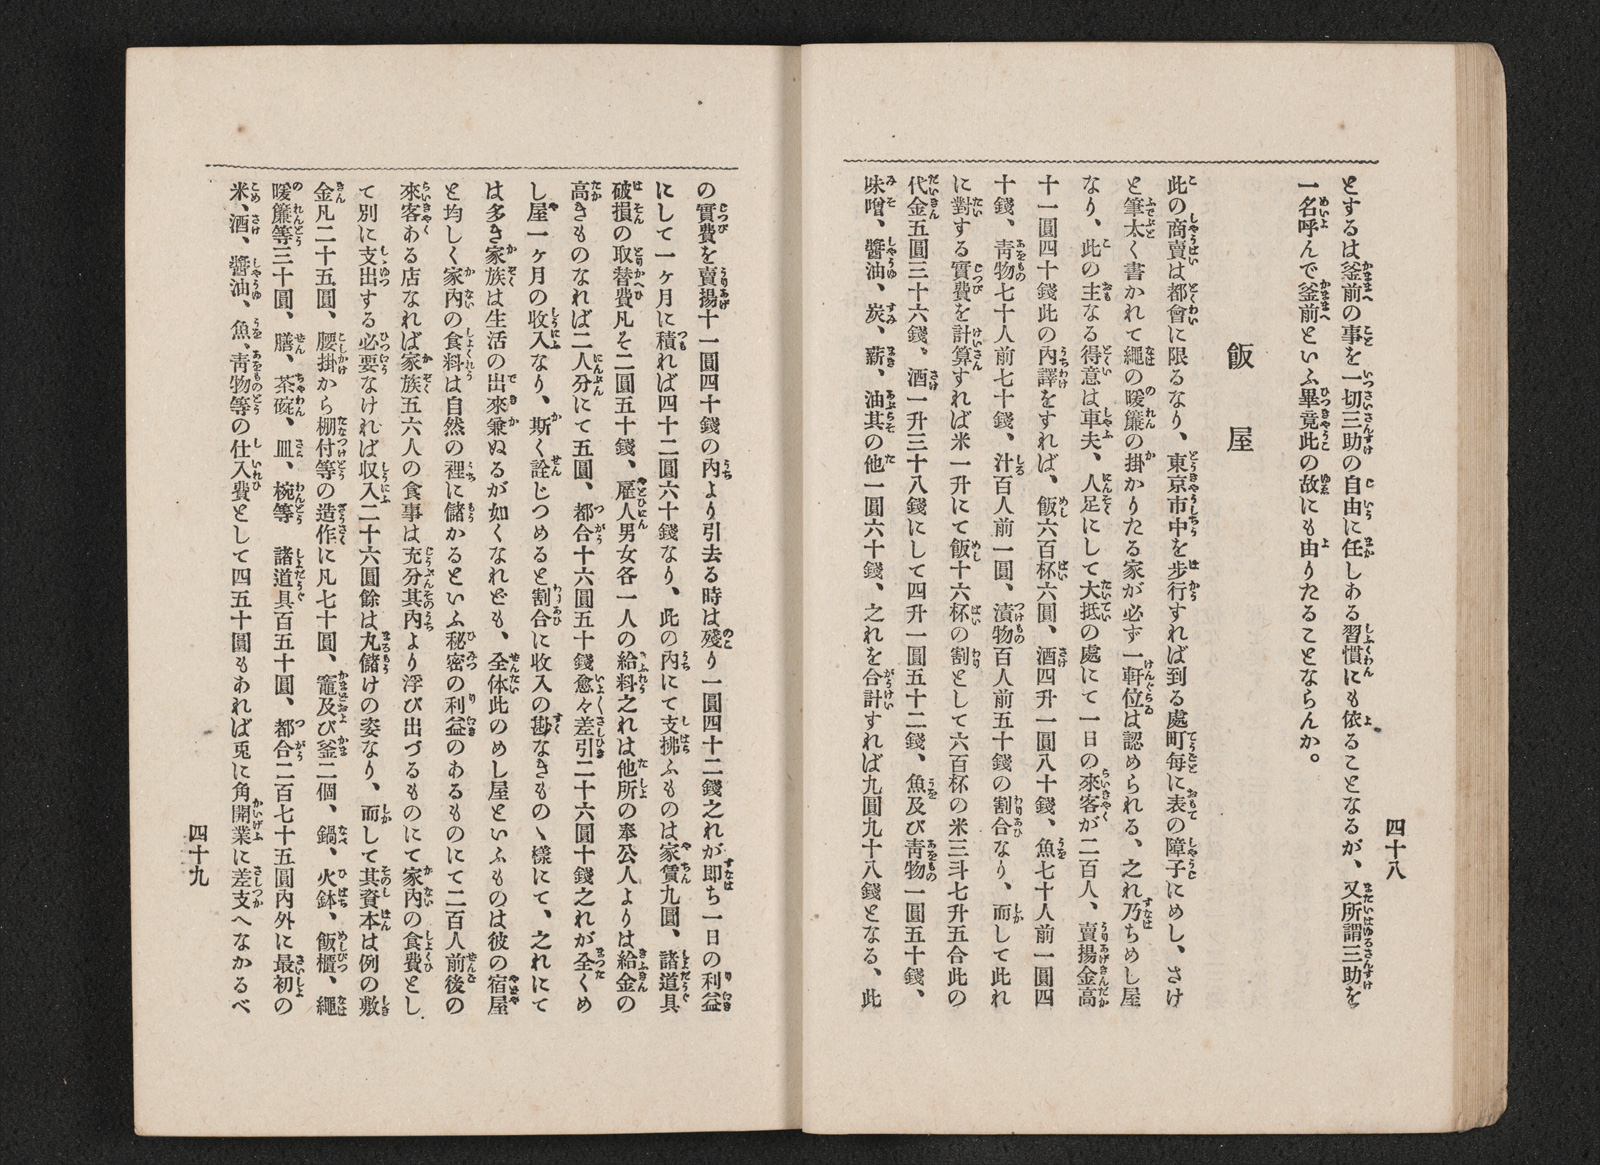 四十八
とするは釜前の事を一切三助の自由に任しある習慣にも依ることとなるが、又所謂三助を
一名呼んで釜前といふ畢竟此の故にも由りたることならんか。
飯屋
此の商賣は都會に限るなり、東京市中を步行すれば到る處町每に表の障子にめし、さけ
と筆太く書かれて繩の暖簾の掛かりたる家が必ず一軒位は認められる、之れ乃ちめし屋
なり、此の主なる得意は車夫、人足にして大抵の處にて一日の來客が二百人、賣揚金高
十一圓四十錢此の內譯をすれば、飯六百杯六圓、酒四升一圓八十錢、魚七十人前一圓四
十錢、靑物七十人前七十錢、汁百人前一圓、漬物百人前五十錢の割合なり、而して此れ
に對する實費を計算すれば米一升にて飯十六杯の割として六百杯の米三斗七升五合此の
代金五圓三十六錢、酒一升三十八錢にして四升一圓五十二錢、魚及び靑物一圓五十錢、
味噌、醬油、炭、薪、油其の他一圓六十錢、之れを合計すれば九圓九十八錢となる、此
の實費を賣揚十一圓四十錢の內より引去る時は殘り一圓四十二錢之れが卽ち一日の利益
にして一ヶ月に積れば四十二圓六十錢なり、此の內にて支拂ふものは家賃九圓、諸道具
破損の取替費凡そ二圓五十錢、雇人男女各一人の給料之れは他所の奉公人よりは給金の
高きものなれば二人分にて五圓、都合十六圓五十錢愈々差引二十六圓十錢之れが全くめ
し屋一ヶ月の收入なり、斯く詮じつめると割合に收入の尠なきものゝ樣にて、之れにて
は多き家族は生活の出來兼ぬるが如くなれども、全体此のめし屋といふものは彼の宿屋
と均しく家內の食料は自然の裡に儲かるといふ秘密の利益のあるものにて二百人前後の
來客ある店なれば家族五六人の食事は充分其內より浮び出づるものにて家內の食費とし
て別に支出する必要なければ收入二十六圓餘は丸儲けの姿なり、而して其資本は例の敷
金凡二十五圓、腰掛から棚付等の造作に凡七十圓、竈及び釜二個、鍋、火鉢、飯櫃、繩
暖簾等三十圓、膳、茶碗、皿、椀等　諸道具百五十圓、都合二百七十五圓內外に最初の
米、酒、醬油、魚、靑物等の仕入費として四五十圓もあれば兎に角開業に差支へなかるべ
四十九